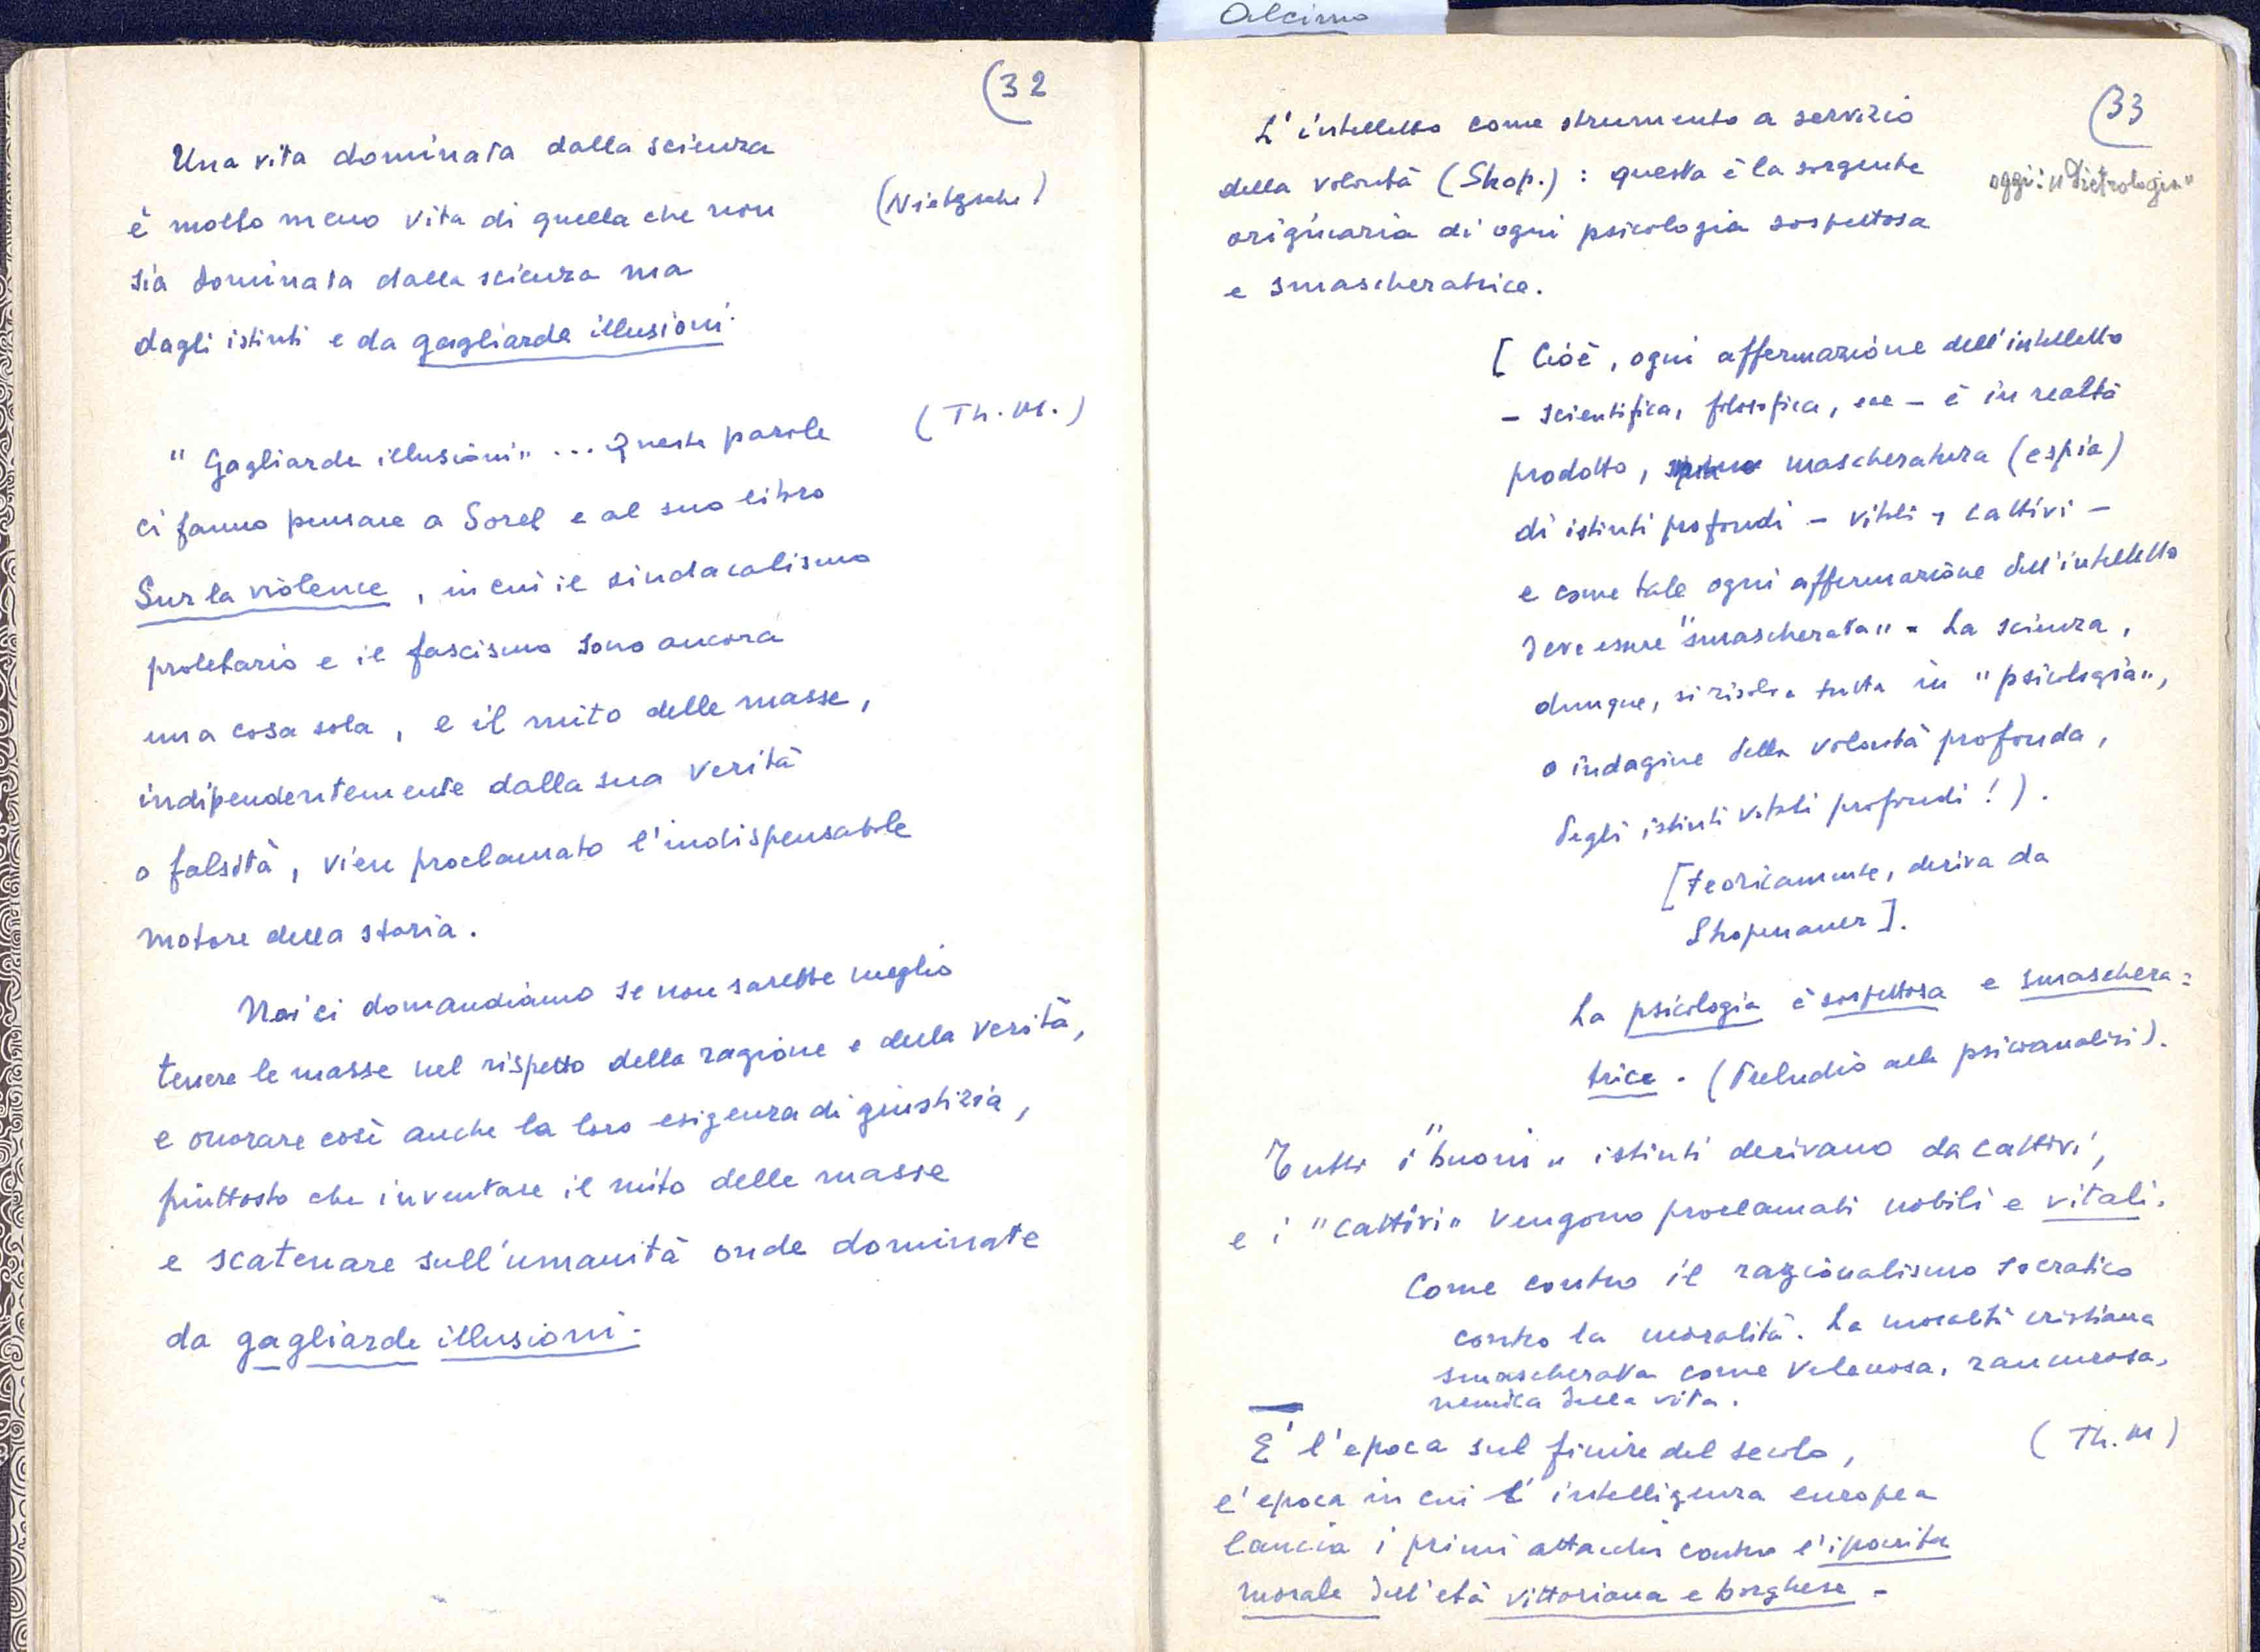 Alcimo
(32
Una vita dominata dalla scienza
è molto meno vita di quella che non (Nietzsche)
sia dominata dalla scienza ma
dagli istinti e da gagliarde illusioni.
" Gagliarde illusioni" ... Queste parole (Th. M.)
ci fanno pensare a Sorel e al suo libro
Sur la violence, in cui il sindacalismo
proletario e il fascismo sono ancora
una cosa sola, e il mito delle masse,
indipendentemente dalla sua verità
o falsità, vien proclamato l'indispensabile
motore della storia.
Noi ci domandiamo se non sarebbe meglio
tenere le masse nel rispetto della ragione e della verità,
e onorare così anche la loro esigenza di giustizia,
piuttosto che inventare il mito delle masse
e scatenare sull'umanità onde dominate
da gagliarde illusioni.
(33
L'intelletto come strumento a servizio
della volontà (Shop.): questa è la sorgente oggi: "Dietrologia"
originaria di ogni psicologia sospettosa
e smascheratrice.
[ Cioè, ogni affermazione dell'intelletto
- scientifica, filosofica, ecc - è in realtà
prodotto, mascheratura (e spia)
di istinti profondi - vitali, cattivi -
e come tale ogni affermazione dell'intelletto
deve essere "smascherata" - La scienza,
dunque, si risolve tutta in "psicologia",
o indagine della volontà profonda,
degli istinti vitali profondi!).
[teoricamente, deriva da
Shopenauer].
La psicologia è sospettosa e smaschera=
trice. (Preludio alla psicoanalisi).
Tutti i "buoni" istinti derivano da cattivi,
e i "cattivi" vengono proclamati nobili e vitali.
Come contro il razionalismo socratico
contro la moralità. La moralità cristiana
smascherata come velenosa, rancurosa,
nemica della vita.
E' l'epoca sul finire del secolo, (Th. M)
l'epoca in cui l'intelligenza europea
lancia i primi attacchi contro l'ipocrita
morale dell'età vittoriana e borghese -